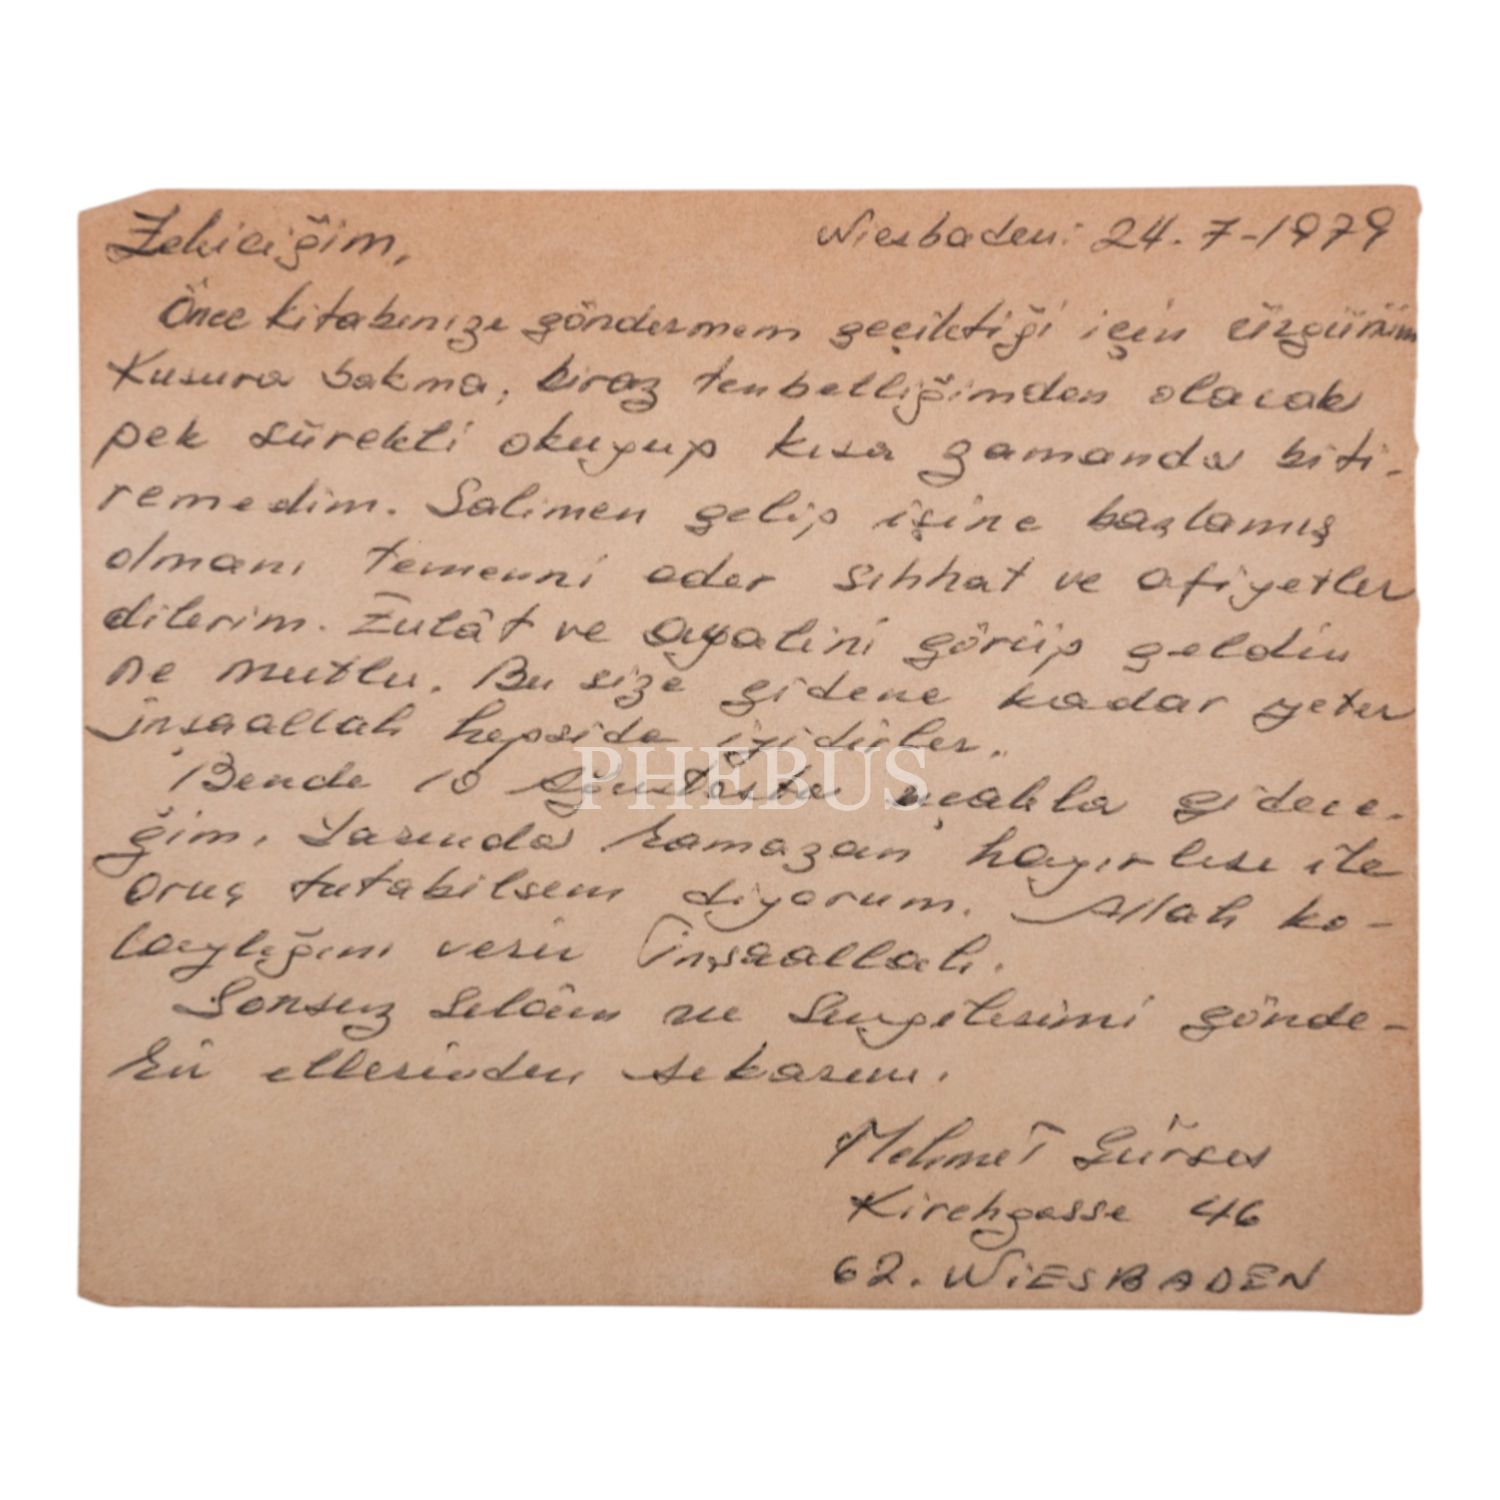 Zekiciğim, Wiesbaden: 24.7-1979
Önce kitabınıze göndermem geciktiği için üzgünüm
Kusura bakma, biraz tenbelliğimden olacak
pek sürekli okuyup kısa zamanda biti-
remedim. Salimen gelip işine başlamış
olmanı temenni eder sıhhat ve afiyetler
dilerim. Zulât ve ayalini görüp geldin
ne mutlu. Bu size gidene kadar yeter
inşaallah hepside iyidirler.
Bende 10 Ağustosta uçakla gidece-
ğim. Yarında Ramazan hayırlısı ile
oruç tutabilsem diyorum. Allah ko-
laylığını verir inşaallah.
Sonsuz selâm ve sevgilerimi gönde-
rir ellerinden sıkarım.
Mehmet Gürses
Kirchgasse 46
62. WiESBADEN
PHEBUS